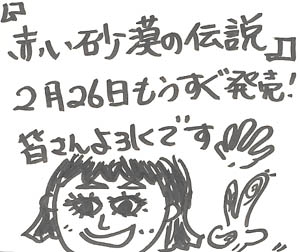 『赤い砂漠の伝説』
2月26日もうすぐ発売!
皆さんよろしくです